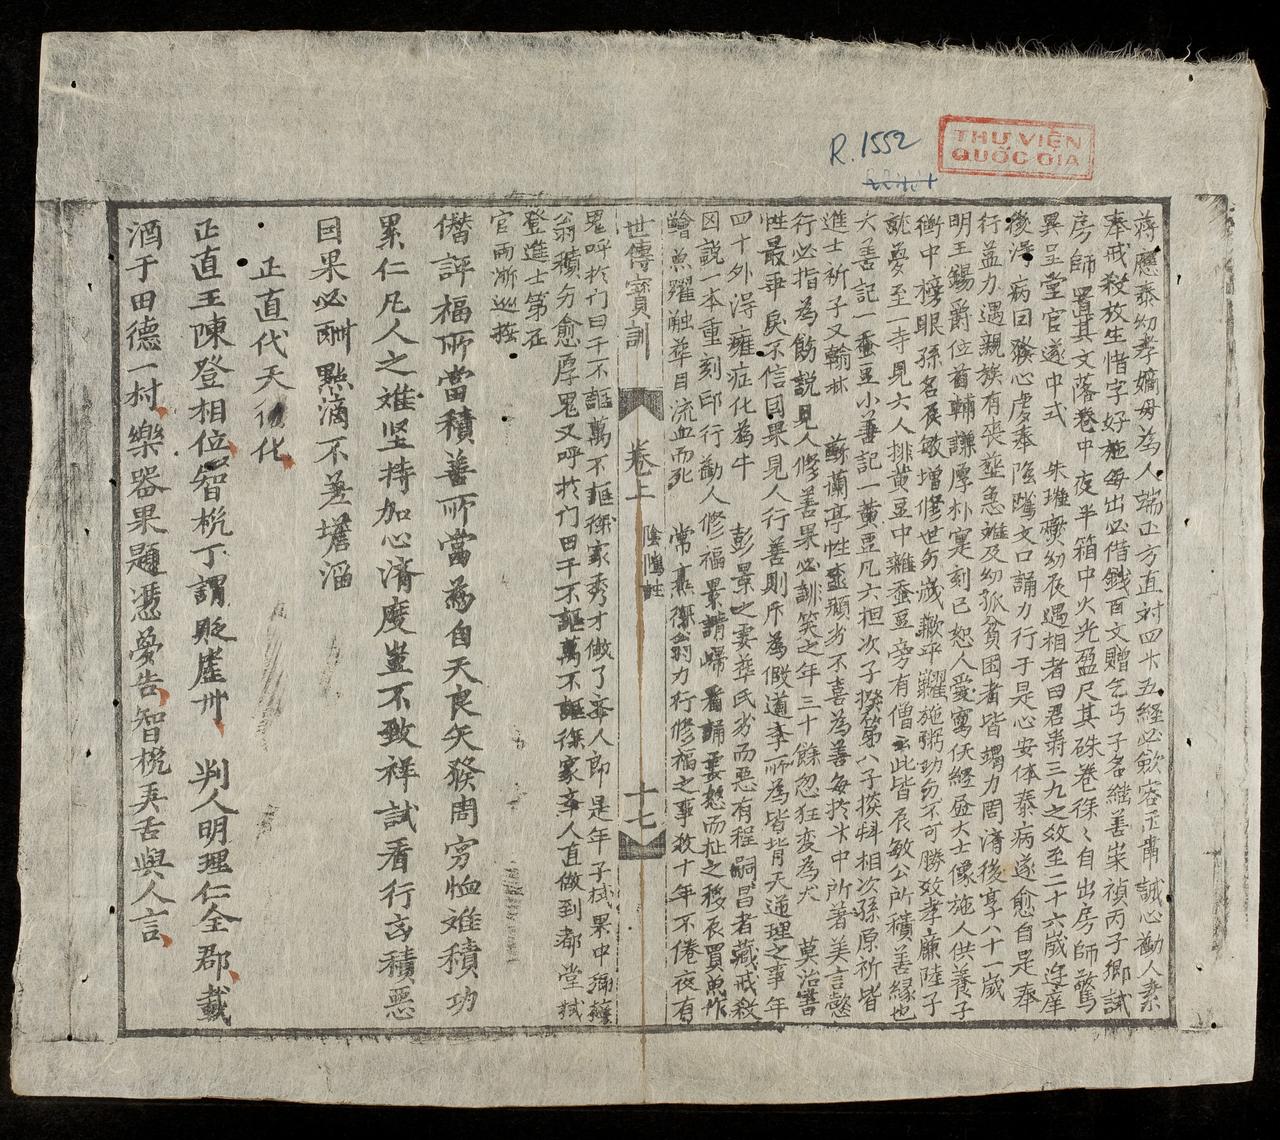 R.1552
THƯ VIỆN
QUỐC GIA
蔣應泰幼孝嫡母為人端正方直対四书五経必歛容正肅誠心勸人素
奉戒殺放生惜字好施每出必借錢百文贈乞丐子名継善崇禎丙子鄉試
房師置其文落卷中夜半箱中火光盈尺其硃卷徐〻自出房師驚
異呈堂官遂中式 朱璀幼辰遇相者曰君壽三九之数至二十六歲遊庠
後淂病囙發心虔奉陰隲文口誦力行于是心安体泰病遂愈自是奉
行益力遇親族有丧塟急难及幼孤貧困者皆竭力周済後享八十一歲
明王錫爵位首輔謙厚朴寔刻己恕人愛寫仸経盛大士像施人供養子
衡中榜眼孫名辰敏增修世为歲歉平糶施粥功为不可勝数孝廉陸子
就夢至一寺見大人排黄豆中雜蚕豆旁有僧云此皆辰敏公所積善緣也
大善記一蚕豆小善記一黄豆凡六担次子揆第八子掞科相次孫原祈皆
進士祈子又翰林 蘇蘭亭性頑劣不喜為善每於书中所著美言懿
行必指為飭說見人修善果必訕笑之年三十餘忽狂变為犬 莫治書
性最乖戾不信因果見人行善則斥為假道李所為皆背天逆理之事年
四十外淂癱症化為牛 彭景之妻塟氏劣而惡有程嗣昌者藏戒殺
囙說一本重刻印行勸人修福景請帰看誦妻怒而扯之移辰買魚作
鱠魚躍触塟目流血而死 常熹徐翁力行修福之事数十年不倦夜有
世傳寳訓
卷上
陰隲註
十七
鬼呼於门曰千不誆萬不誆徐家秀才做了举人郎是年子栻果中鄉舉
翁積为愈厚鬼又呼於门曰千不誆萬不誆徐家举人直做到都堂栻
登進士第征
官両浙巡按
僭評福所當積善所當為自天良矢發周穷恤难積功
累仁凡人之难坚持加心済度豈不致祥試看行言積惡
因果必酬點滴不差墻溜
正直代天行化
正直王陳登相位智梲丁謂貶崖州 判人明理仁全郡載
酒于田德一村樂器果題憑夢告智梲弄舌與人言